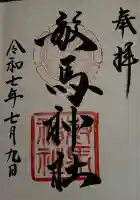 奉拝
敏馬神社
令和七年七月九日